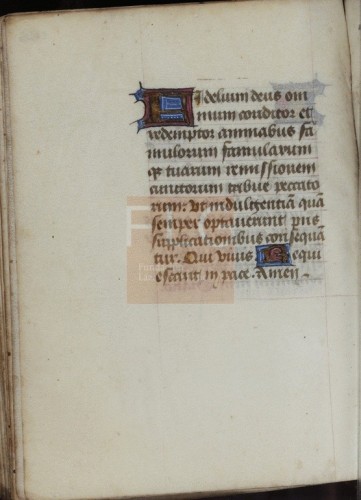 Fidelium deus om
nium conditor et
redemptor animabus fa
mulorum famularum
q3 tuarum remissionem
cunctorum tribue peccato
rum. Ut indulgentiā quā
semper optaverunt piis
supplicationibus consequā
tur. Qui vivis. Requi
escant in pace. Amen